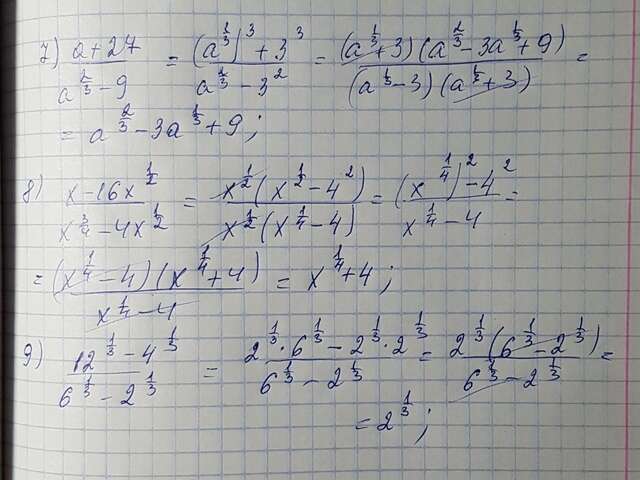 7) (a+27)/(a^(2/3)-9) = ((a^(1/3))^3+3^3)/(a^(2/3)-3^2) = ((a^(1/3)+3)(a^(2/3)-3a^(1/3)+9))/((a^(1/3)-3)(a^(1/3)+3)) =
= a^(2/3)-3a^(1/3)+9;
8) (x-16x^(1/2))/(x^(3/4)-4x^(1/2)) = (x^(1/2)(x^(1/2)-4^2))/(x^(1/2)(x^(1/4)-4)) = ((x^(1/4))^2-4^2)/(x^(1/4)-4) =
= ((x^(1/4)-4)(x^(1/4)+4))/(x^(1/4)-4) = x^(1/4)+4;
9) (12^(1/3)-4^(1/3))/(6^(1/3)-2^(1/3)) = (2^(1/3)·6^(1/3)-2^(1/3)·2^(1/3))/(6^(1/3)-2^(1/3)) = (2^(1/3)(6^(1/3)-2^(1/3)))/(6^(1/3)-2^(1/3)) =
= 2^(1/3);